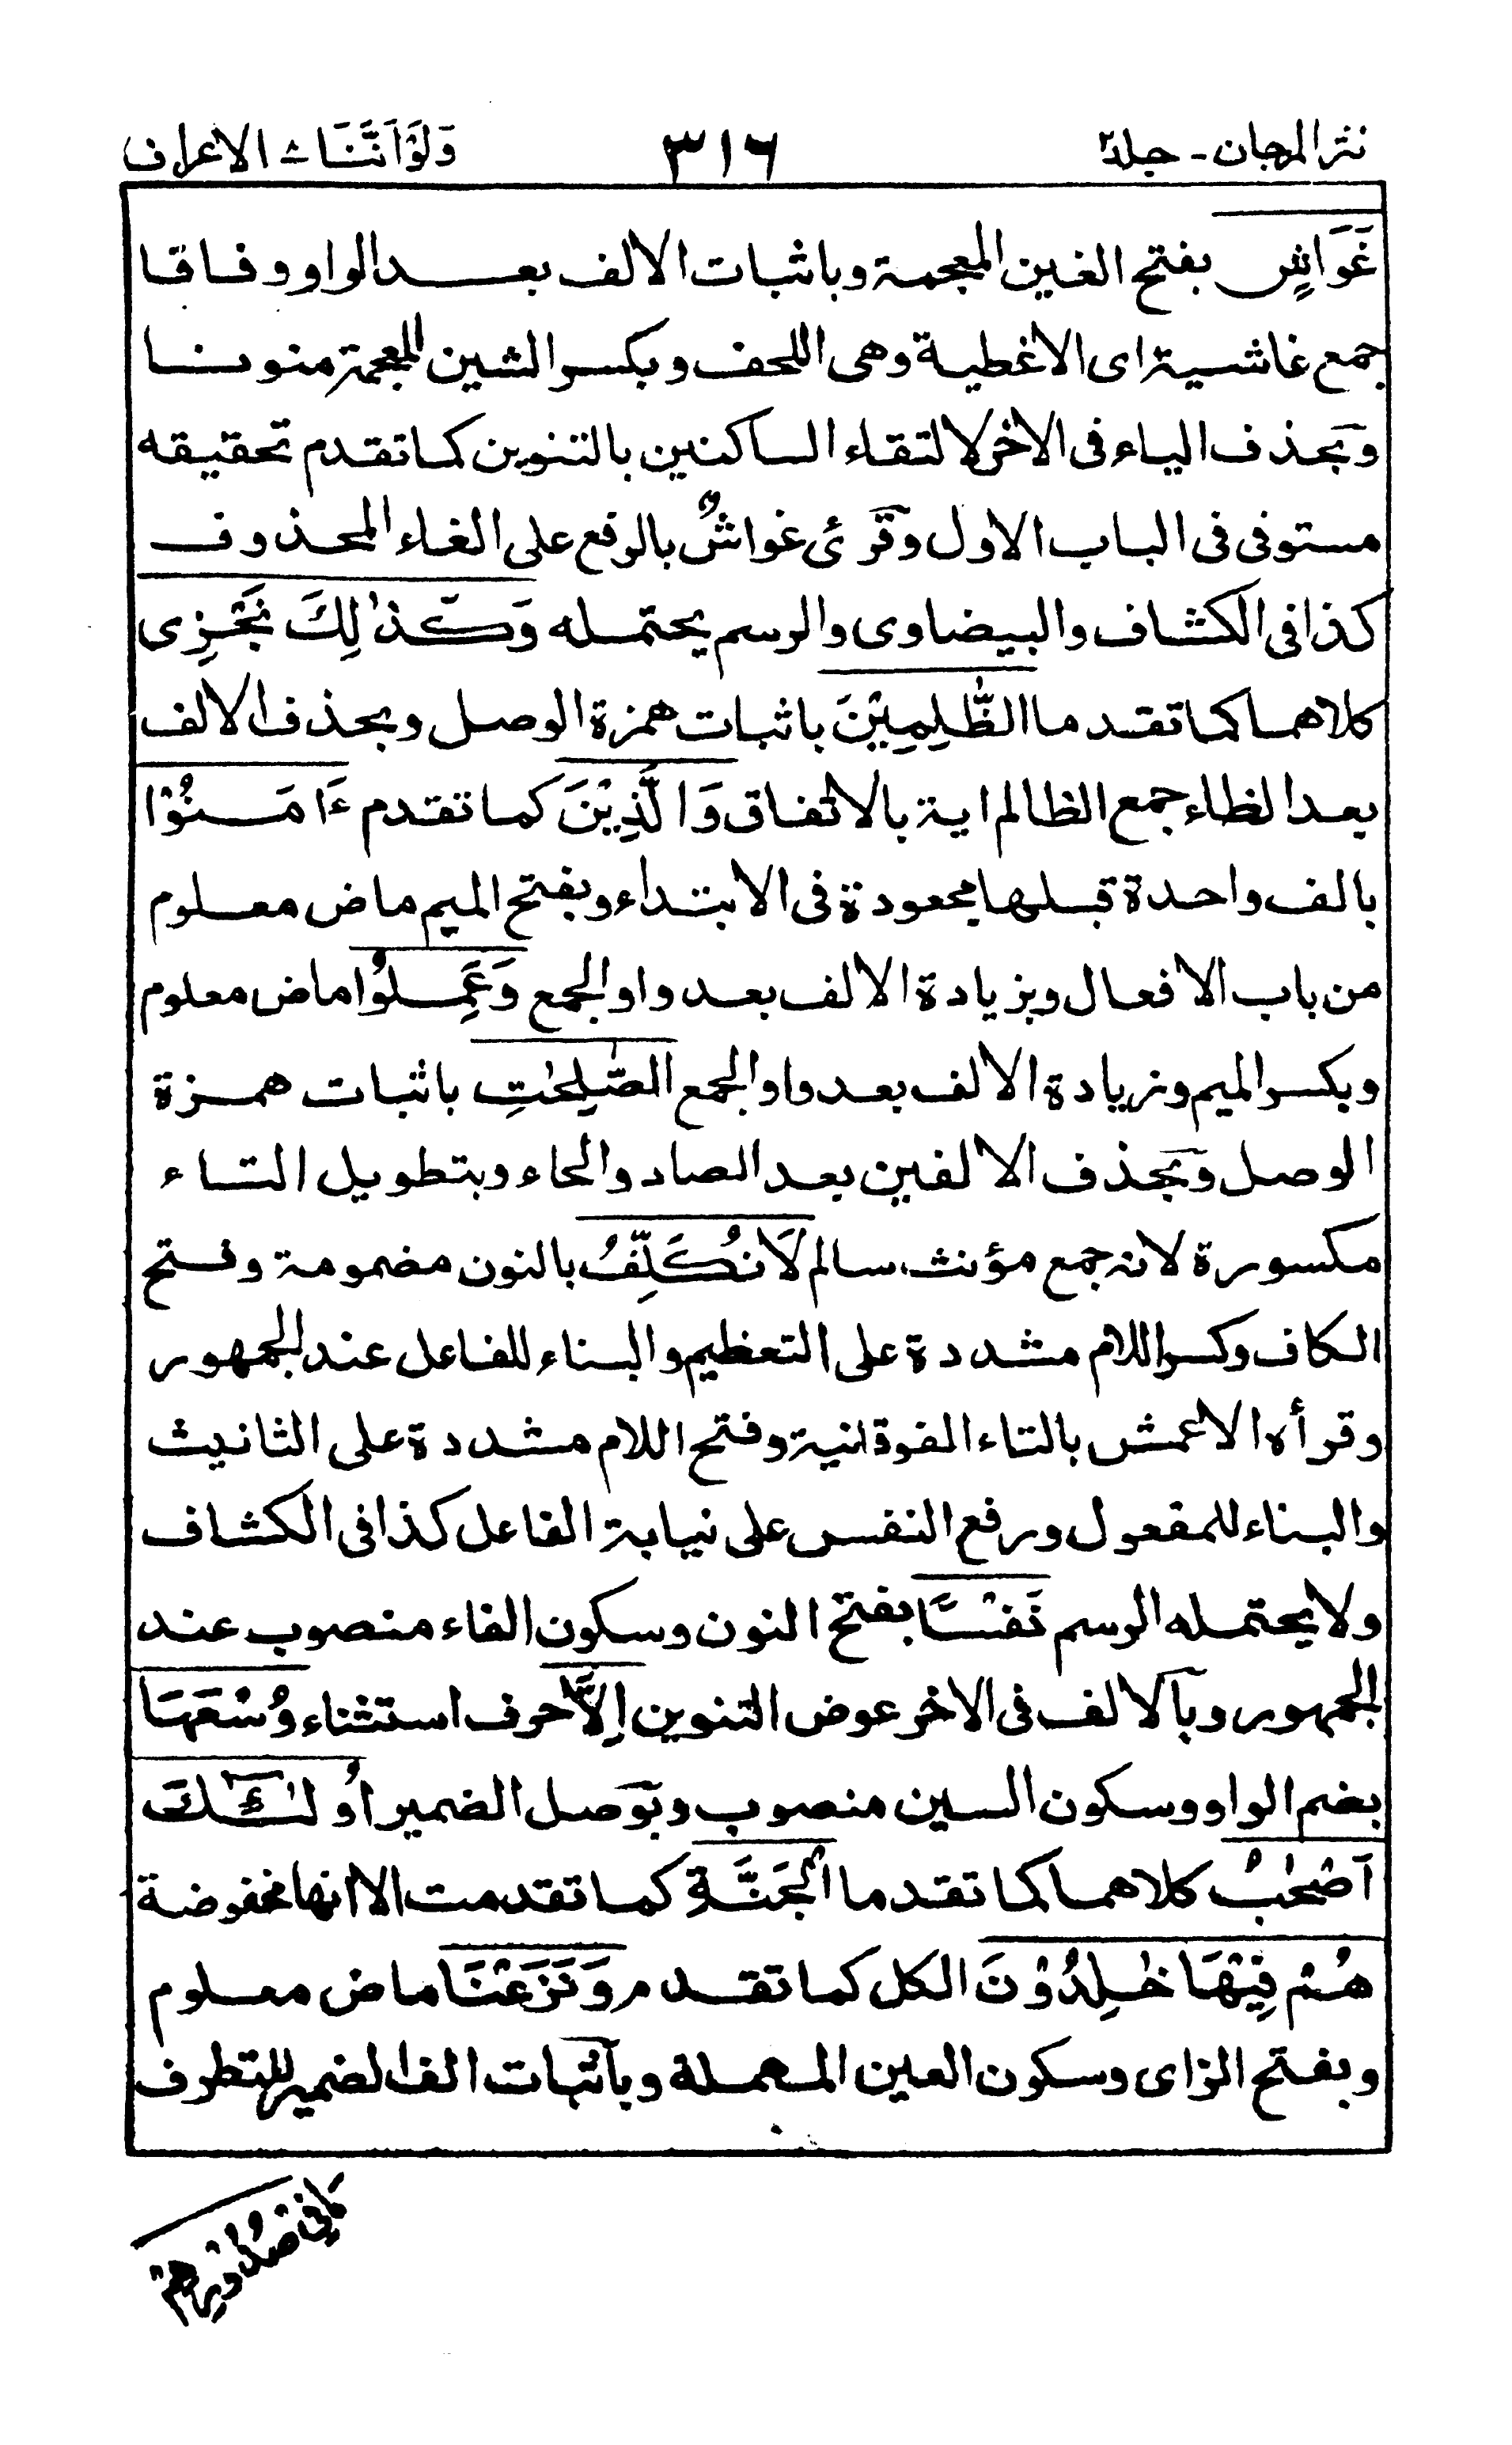 نثر المرجان - جلد۲ ٣١٦ وَلَوْ اَنَّنَا ٨ الاعراف
غَوَاشٍ بفتح الغين المعجمة وباثبات الالف بعد الواو وفاقا
جمع غاشية اى الاغطية وهى اللحف وبكسر الشين المعجمة منونا
وبحذف الياء فى الاخر لالتقاء الساكنين بالتنوين كما تقدم تحقيقه
مستوفى فى الباب الاول وقرئ غواشٌ بالرفع على الغاء المحذوف
كذا فى الكشاف والبيضاوى والرسم يحتمله وَكَذٰلِكَ نَجْزِى
كلاهما كما تقدما الظّٰلِمِيْنَ باثبات همزة الوصل وبحذف الالف
بعد الظاء جمع الظالم اية بالاتفاق وَالَّذِيْنَ كما تقدم ءَامَنُوْا
بالف واحدة قبلها مجعودة فى الابتداء وبفتح الميم ماض معلوم
من باب الافعال وبزيادة الالف بعد واو الجمع وَعَمِلُوا ماض معلوم
وبكسر الميم وزيادة الالف بعد واو الجمع الصّٰلِحٰتِ باثبات همزة
الوصل وبحذف الالفين بعد الصاد والحاء وبتطويل التاء
مكسورة لانه جمع مؤنث سالم لَانُكَلِّفُ بالنون مضمومة وفتح
الكاف وكسر اللام مشددة على التعظيم والبناء للفاعل عند الجمهور
وقرأه الاعمش بالتاء الفوقانية وفتح اللام مشددة على التانيث
والبناء للمفعول ورفع النفس على نيابة الفاعل كذا فى الكشاف
ولا يحتمله الرسم نَفْسًا بفتح النون وسكون الفاء منصوب عند
الجمهور وبالالف فى الاخر عوض التنوين اِلَّا حرف استثناء وُسْعَهَا
بضم الواو وسكون السين منصوب وبوصل الضمير اُولٰٓئِكَ
اَصْحٰبُ كلاهما كما تقدما الْجَنَّةِ كما تقدمت الا انها مخفوضة
هُمْ فِيْهَا خٰلِدُوْنَ الكل كما تقدم وَنَزَعْنَا ماض معلوم
وبفتح الزاى وسكون العين المهملة وباثبات الف الضمير للتطرف
مَا فِى صُدُوْرِهِمْ